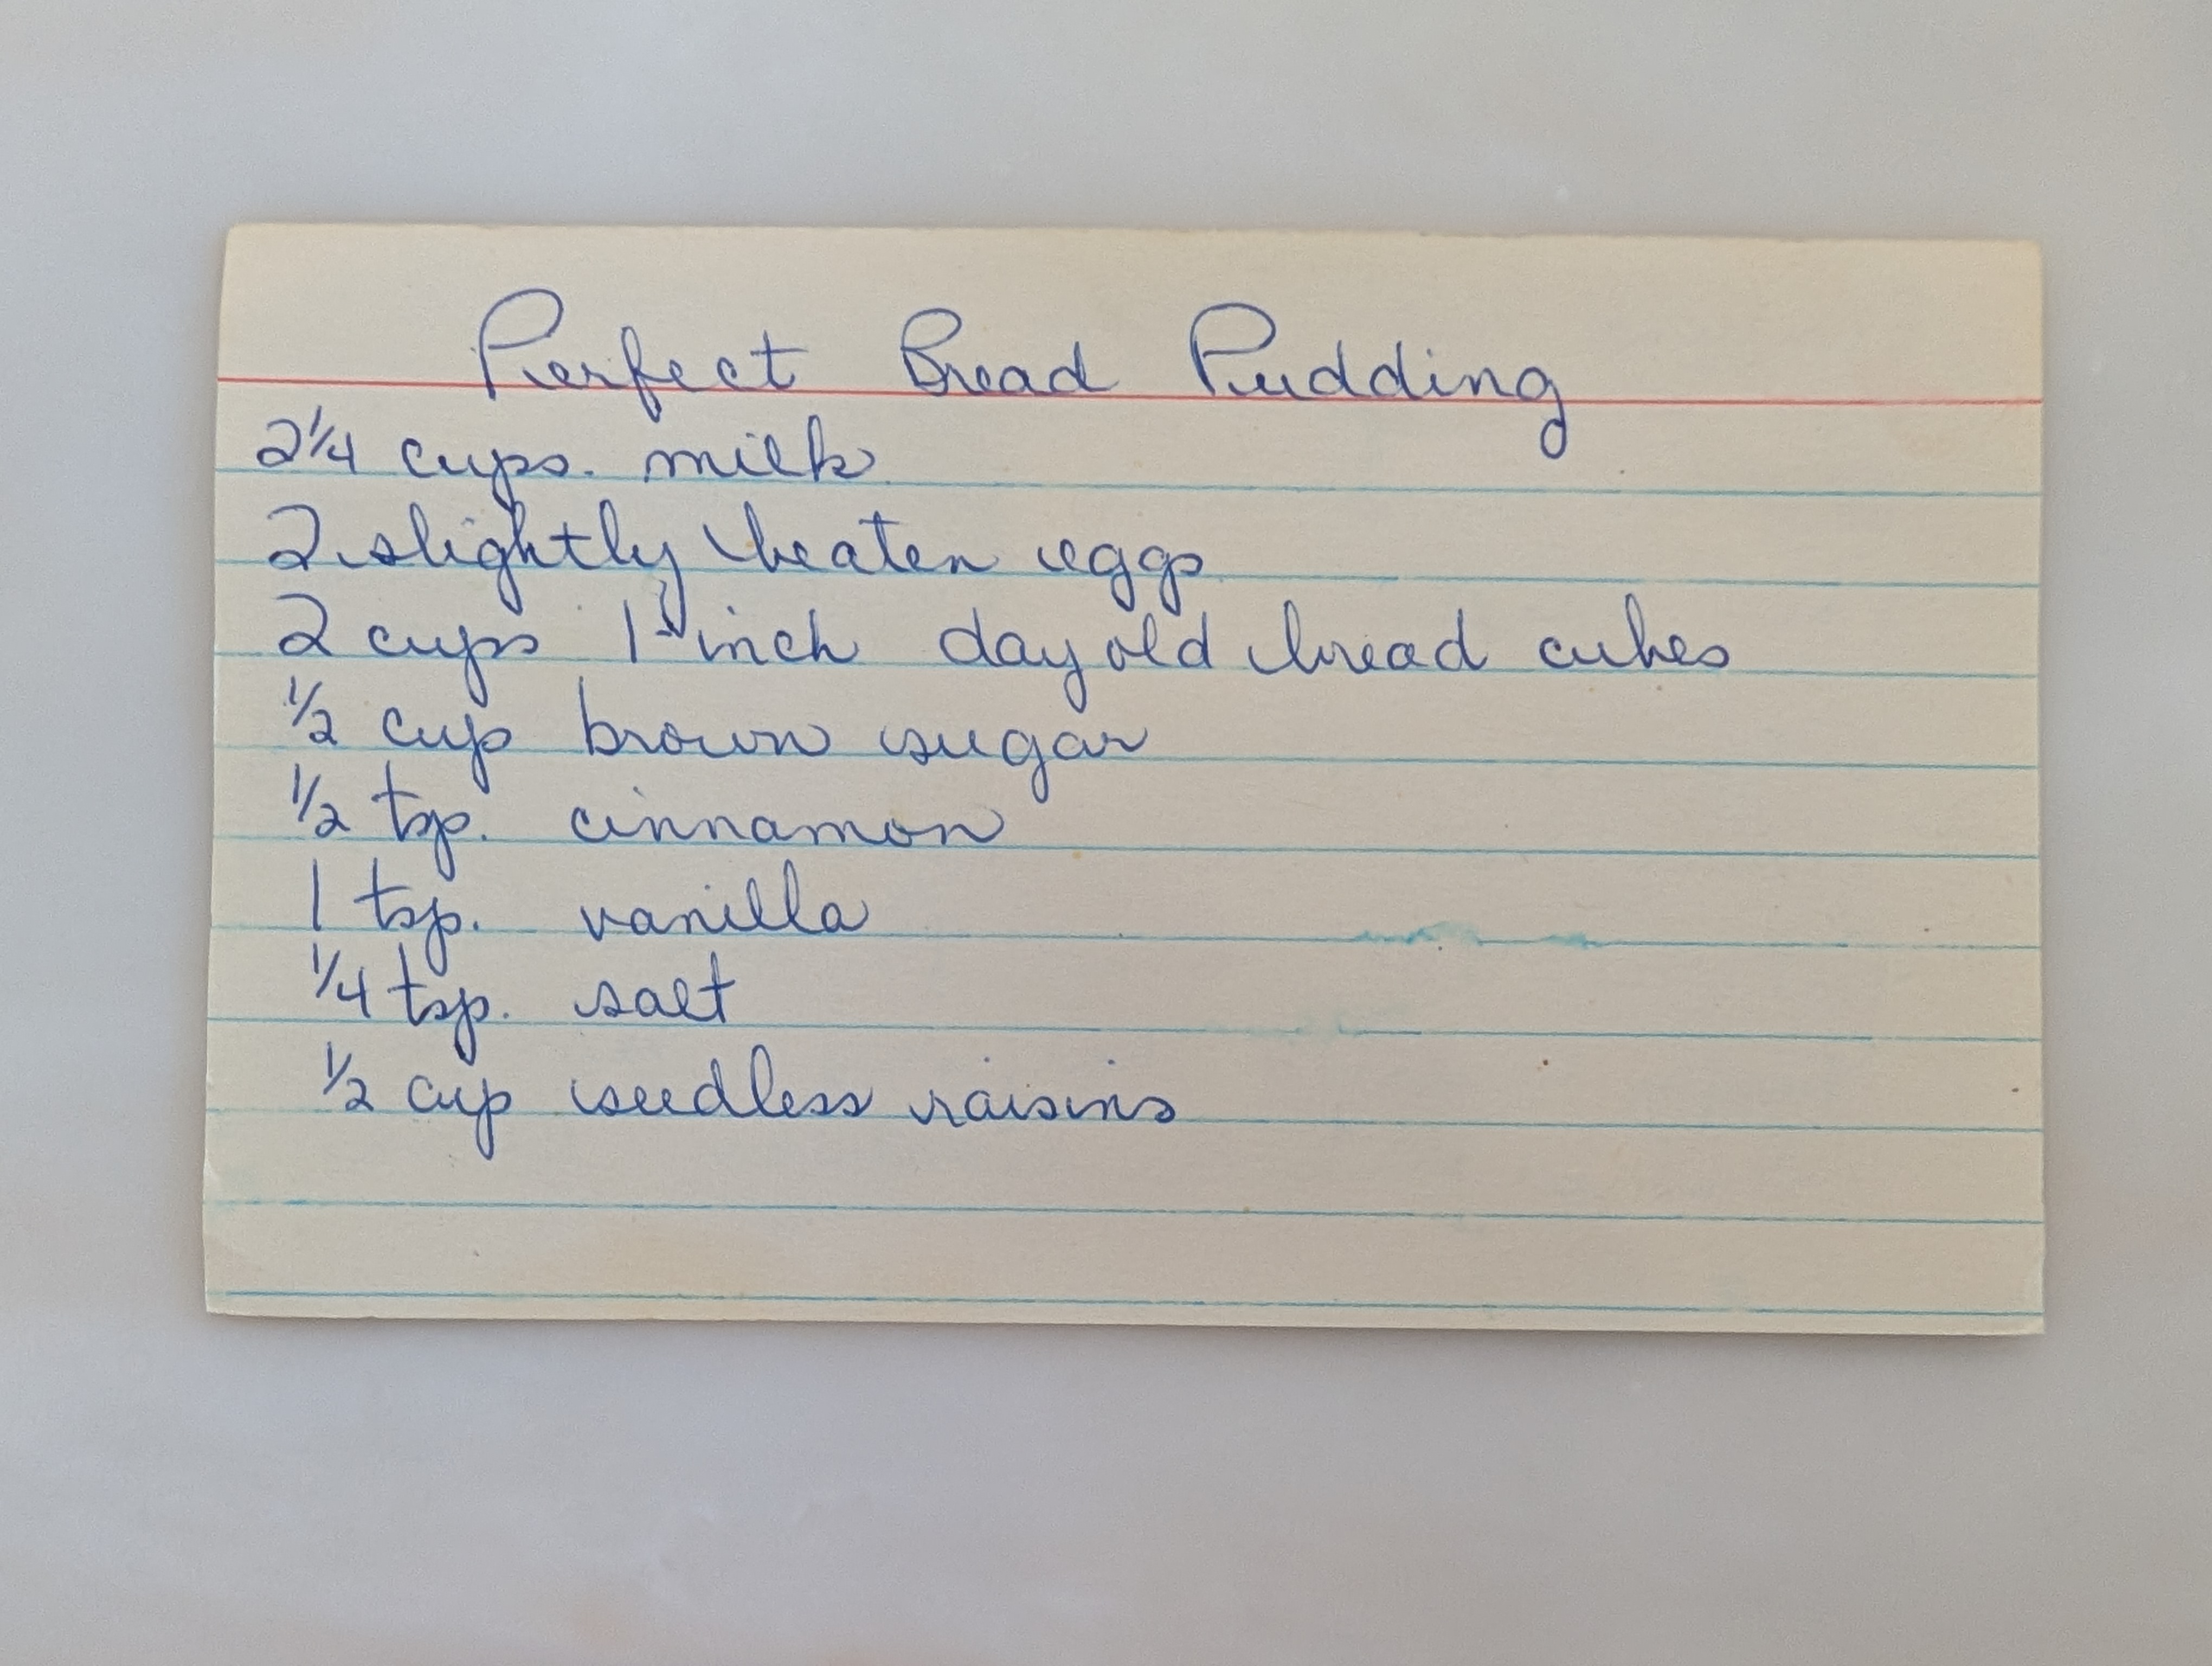 Perfect Bread Pudding
2 1/4 cups. milk
2 slightly beaten eggs
2 cups 1-inch day old bread cubes
1/2 cup brown sugar
1/2 tsp. cinnamon
1 tsp. vanilla
1/4 tsp. salt
1/2 cup seedless raisins